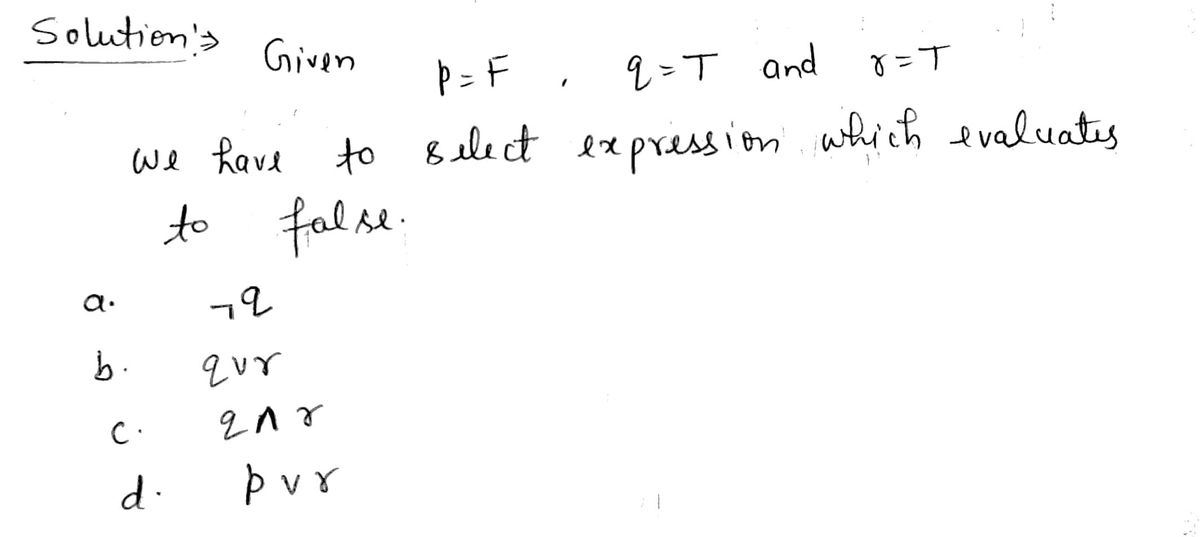 Solution:⇒ Given p = F , q = T and r = T
we have to select expression which evaluates
to false.
a. ¬q
b. q∨r
c. q∧r
d. p∨r